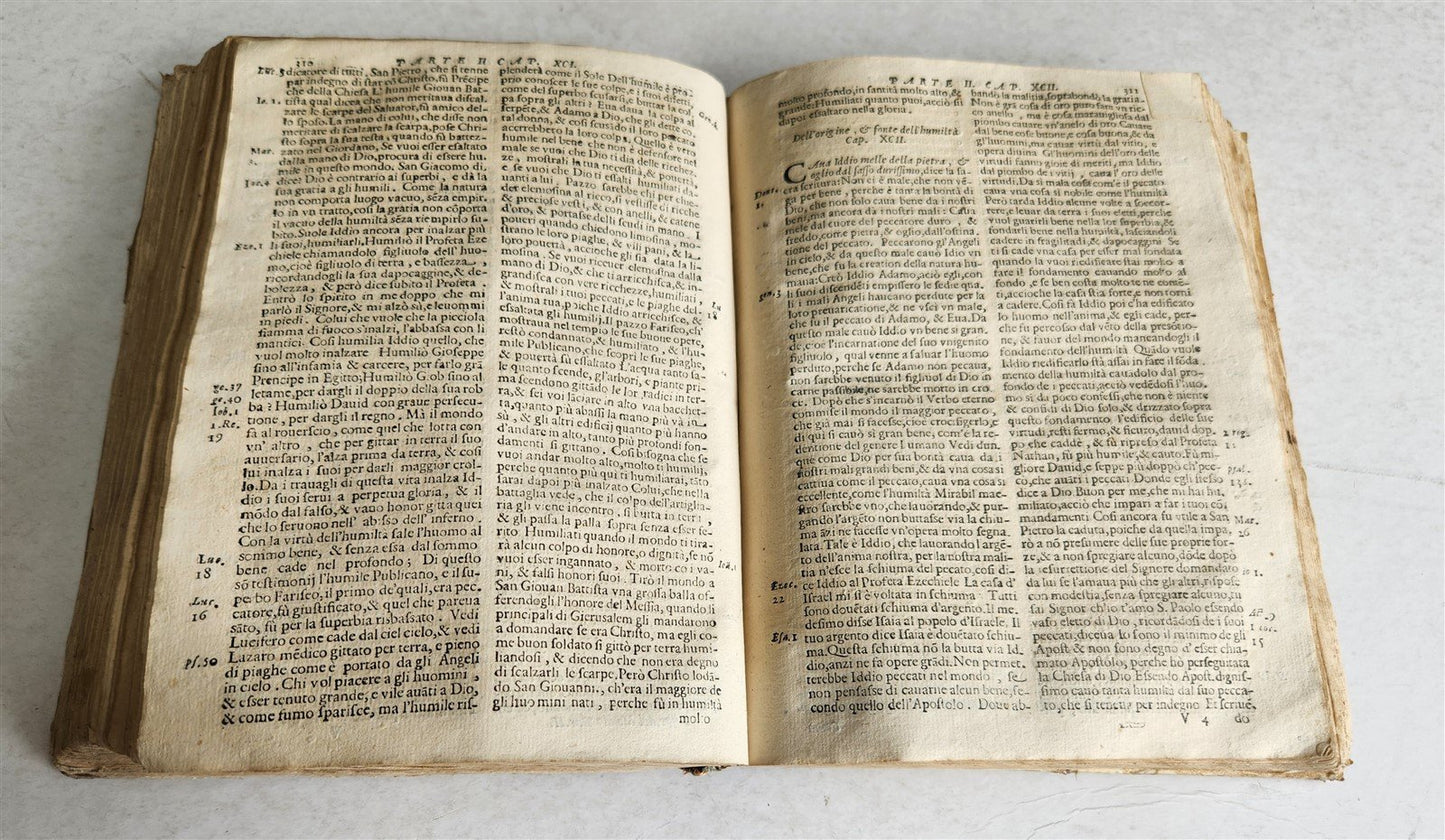 310
PARTE II CAP. XCI.
dicatore di tutti. San Pietro, che si tenne
par indegno di star cõ Christo, fù Prēcipe
che della Chiesa L'humile Giouan Bat-
tista qual dicea che non meritaua discal-
zare le scarpe del Saluator, fù amico del-
lo sposo. La mano di colui, che disse non
meritare di scalzare la scarpa, pose Chri-
sto sopra la sua testa, quando fù battez-
zato nel Giordano, Se vuoi esser esaltato
dalla mano di Dio, procura di essere hu-
mile in questo mondo. San Giacomo di,
dice: Dio è contrario ai superbi, e dà la
sua gratia a gli humili. Come la natura
non comporta luogo vacuo, senza empir.
lo in vn tratto, cosi la gratia non cõporta
il vacuo della humiltà sēza riempirlo su-
bito. Suole Iddio ancora per inalzar più
li suoi, humiliarli. Humiliò il Profeta Eze
chiele chiamandolo figliuolo dell'huo-
mo, cioè figliuolo di terra, e bassezza,
ricordandogli la sua dapocaggine, & de-
bolezza, & però dice subito il Profeta.
Entrò lo spirito in me doppo che mi
parlò il Signore, & mi alzò sù, e leuommi
in piedi. Colui che vuole che la picciola
fiamma di fuoco s'inalzi, l'abbassa con li
mantici. Cosi humilia Iddio quello, che
vuol molto inalzare Humiliò Gioseppe
sino all'infamia & carcere, per farlo grã
Prencipe in Egitto; Humiliò Giob sino al
letame, per dargli il doppio della sua rob
ba? Humiliò Dauid con graue persecu-
tione, per dargli il regno. Mà il mondo
fà al rouerscio, come quel che lotta con
vn' altro, che per gittar in terra il suo
auuersario, l'alza prima da terra, & così
lui inalza i suoi per darli maggior crol-
lo. Da i trauagli di questa vita inalza Id-
dio i suoi serui a perpetua gloria, & il
mõdo dal falso, & vano honor gitta quei
che lo seruono nell' abisso dell' inferno.
Con la virtù dell'humiltà sale l'huomo al
sommo bene, & senza essa dal sommo
bene cade nel profondo; Di questo
sõ testimonij l'humile Publicano, e il su-
perbo Fariseo, il primo de'quali, era pec-
catore, fù giustificato, & quel che pareua
sãto, fù per la superbia risbassato. Vedi
Lucifero come cade dal ciel cielo, & vedi
Lazaro mēdico gittato per terra, e pieno
di piaghe come è portato da gli Angeli
in cielo. Chi vol piacere a gli huomini,
& esser tenuto grande, e vile auãti a Dio,
& come fumo sparisce, ma l'humile ris-
Luc. 5
Io. 1.
Mar.
Iac. 4
Eze. 1
ge. 37
ge. 40
Iob. 1
1. Re.
19
Luc.
18
Luc.
16
Ps. 50
plenderà come il Sole Dell'humile è pro-
prio conoscer le sue colpe, e i suoi difetti,
come del superbo scusarsi, e buttar la col.
pa sopra gli altri: Eua daua la colpa al
serpēte, & Adamo a Dio, che gli dette co-
tal donna, & cosi scusãdo il loro peccato
accrebbero la loro colpa. Quello è vero
humile nel bene che non è defensore nel
male se vuoi che Dio ti dia delle ricchez-
ze, mostrali la tua necessità, & pouertà,
e se vuoi che Dio ti essalti humiliati da-
uanti a lui, Pazzo sarebbe chi per chie-
der elemosina al ricco, si vestisse di ricche
& preciose vesti, & con anelli, & catene
d'oro, & portasse delli scudi in mano. I
poueri quando chiedono limosina, mo-
strano le loro piaghe, & vili pani, & la
loro pouertà, accioche gli sia data la li-
mosina. Se vuoi riceuer elemosina dalla
mano di Dio, & che ti arricchisca, & in-
grandisca con vere ricchezze, humiliati,
& mostrali i tuoi peccati, e le piaghe del-
l'anima tua, poiche Iddio arricchisce, &
essaltata gli humili. Il pazzo Fariseo, ch'
mostraua nel tempio le sue buone opere,
restò condannato, & humiliato, & l'hu-
mile Publicano, che scoprì le sue piaghe,
& pouertà fù essaltato L'acqua tanto sa-
le quanto scende, gl'arbori, e piante pri-
ma scendono gittãdo le lor radici in ter-
ra, & sei voi làciare in alto vna bacchet-
ta, quanto più abassi la mano più và in
sù, & gli altri edificij quanto più hanno
d'andare in alto, tanto più profondi fon-
damenti si gittano. Cosi bisogna che se
vuoi andar molto alto, molto ti humilj,
perche quanto più qui ti humiliarai, tãto
sarai dopoi più inalzato Colui, che nella
battaglia vede, che il colpo dell'artiglia-
ria gli viene incontro, si butta in terra,
& gli passa la palla sopra senza esser fe-
rito Humiliati quando il mondo ti tira-
rà alcun colpo di honore, o dignità, se nõ
vuoi esser ingannato, & morto co i va-
ni, & falsi honori suoi. Tirò il mondo a
San Giouan Battista vna grossa balla of-
ferendogli l'honore del Messia, quando li
principali di Gierusalem gli mandarono
a domandare se era Christo, ma egli co-
me buon soldato si gittò per terra humi-
liandosi, & dicendo che non era degno
di scalzarli le scarpe, Però Christo lodã-
do San Giouanni, ch'era il maggiore de
gli huomini nati, perche fù in humil
molto
Gen. 4
Lu.
18
Ioã. 1
PARTE II. CAP. XCII.
311
molto profondo, in santità molto alto, &
grande: Humiliati quanto puoi, acciò sij
dapoi essaltato nella gloria.
Dell'origine, & fonte dell'humiltà
Cap. XCII.
CAua Iddio melle della pietra, &
oglio dal sasso durissimo, dice la sa-
cra scrittura: Non ci è male, che non vē-
ga per bene, perche è tanta la bontà di
Dio, che non solo caua bene da i nostri
beni, ma ancora da i nostri mali: Caua
mele dal cuore del peccatore duro, &
freddo, come pietra, & oglio, dall'ostina.
tione del peccato. Peccarono gl'Angeli
in cielo, & da questo male cauò Idio vn
bene, che fu la creation della natura hu-
mana: Creò Iddio Adamo, aciò egli, con
li suoi discendēti empissero le sedie qua.
li i mali Angeli haueano perdute per la
loro preuaricatione, & ne vsci vn male,
che fu il peccato di Adamo, & Eua. Da
questo male cauò Iddio vn bene si gran.
de, cioè l'incarnatione del suo vnigenito
figliuolo, qual venne a saluar l'huomo
perduto, perche se Adamo non peccaua,
non sarebbe venuto il figliuol di Dio in
carne passibile, ne sarebbe morto in cro
ce. Dopò che s'incarnò il Verbo eterno
commise il mondo il maggior peccato,
che già mai si facesse, cioè crocifigerlo, e
di qui si cauò si gran bene, com'e la re-
dentione del genere humano Vedi dun.
que come Dio per sua bontà caua da i
nostri mali grandi beni, & da vna cosa si
cattiua come il peccato, caua vna cosa si
eccellente, come l'humiltà Mirabil mae-
stro sarebbe vno, che lauorãdo, & pur-
gando l'argēto non buttasse via la schiu-
ma ãzi ne facesse vn'opera molto segna.
lata. Tale è Iddio, che lauorando l'argē-
to dell'anima nostra, per la nostra mali-
tia n'esce la schiuma del peccato, cosi di-
ce Iddio al Profeta Ezechiele La casa d'
Israel mi si è voltata in schiuma: Tutti
sono douētati schiuma d'argento. Il me.
desimo disse Isaia al popolo d'Israele. Il
tuo argento dice Isaia è douētato schiu-
ma. Questa schiuma nõ la butta via Id.
dio, anzi ne fa opere grãdi. Non permet.
terebbe Iddio peccati nel mondo, se
non pensasse di cauarne alcun bene, se-
condo quello dell'Apostolo. Doue ab-
Deut.
gen. 3
Ezec.
22
Esa. 1
bando la malitia, soprabondò la gratia.
Non è gra cosa di oro puro fare vn ric-
co anello, ma è cosa marauigliosa dal
piombo cauare vn'anello di oro. Cauare
dal bene cose buone, e cosa buona, & da
gl'huomini, ma cauar virtù dal vitio, e
opera diuina Gl'huomini dell'oro delle
virtudi fanno gioie di meriti, ma Iddio
dal piombo de i vitij, caua l'oro delle
virtudi. Da si mala cosa com'è il peccato
caua vna cosa si nobile come l'humiltà
Però tarda Iddio alcune volte a soccor-
rere, e leuar da terra i suoi eletti, perche
vuol guarirli bene nella lor superbia, &
fondarli bene nella humiltà, lasciandoli
cadere in fragilitadi, & dapocaggini Se
ti si cade vna casa per esser mal fondata
quando la vuoi riedificare stai molto a
fare il fondamento cauando molto al
fondo, e se ben costa molto te ne contē-
ti, accioche la casa stia forte, e non torni
a cadere. Cosi fà Iddio poi c'ha edificato
lo huomo nell'anima, & egli cade, per-
che fu percosso dal vēto della presõtio-
ne, & fauor del mondo mancandogli il
fondamento dell'humiltà Quãdo vuole
Iddio riedificarlo stà assai in fare il fõda.
mento della humiltà cauadolo dal pro-
fondo de i peccati, acciò vedēdosi l'huo.
mo si da poco confessi, che non è niente
& confidi di Dio solo, & drizzato sopra
questo fondamento l'edificio delle sue
virtudi, resti fermo, & sicuro, dauid dop.
po che caddè, & fù ripreso dal Profeta
Nathan, fù più humile, & cauto. Fù mi-
gliore Dauid, e seppe più doppò ch'pec-
cò, che auãti i peccati Donde egli stesso
dice a Dio. Buon per me, che mi hai hu.
miliato, acciò che impari a far i tuoi co
mandamenti Cosi ancora fu vtile a San
Pietro la caduta, poiche da quella impa.
rò a nõ presumere delle sue proprie for-
ze, & a non spregiare alcuno, dõde dopò
la resurrettione del Signore domandato
da lui se l'amaua più che gli altri, rispose
con modestia, senza spregiare alcuno, tu
sai Signor ch'io t'amo S. Paolo essendo
vaso eletto di Dio, ricordãdosi de i suoi
peccati, diceua Io sono il minimo de gli
Apost. & non sono degno d'esser chia-
mato Apostolo, perche hò perseguitata
la Chiesa di Dio Essendo Apost. dignis-
simo cauò tanta humiltà dal suo pecca-
to, che si teneua per indegno Et scriuē,
2 reg.
Psal.
Mar.
26
1 cor.
15
V 4
do